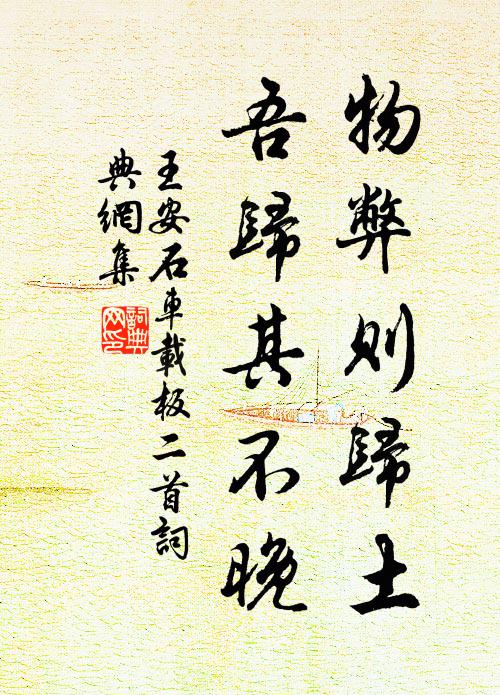 物弊则歸土
吾歸其不晚
王安石車載板二首詞
典網集
詞典
网印